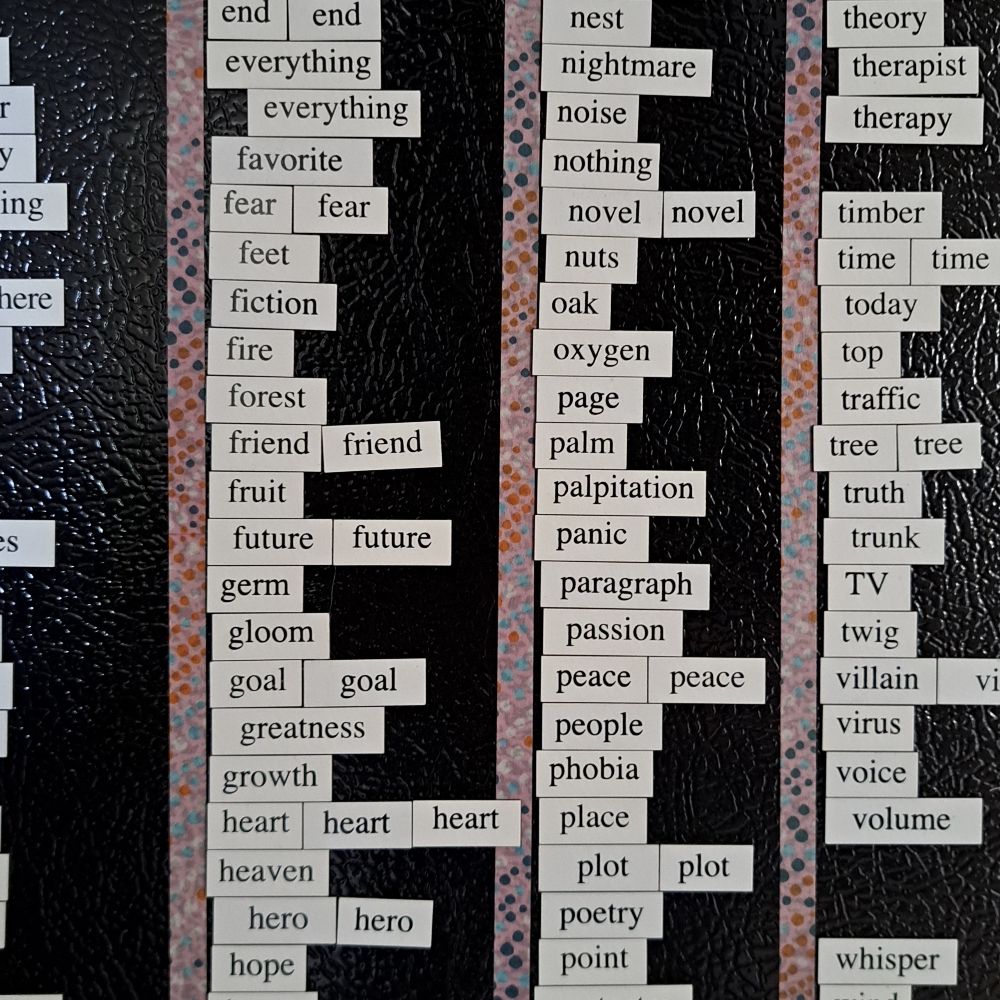 end end
everything
everything
favorite
fear fear
feet
fiction
fire
forest
friend friend
fruit
future future
germ
gloom
goal goal
greatness
growth
heart heart heart
heaven
hero hero
hope
nest
nightmare
noise
nothing
novel novel
nuts
oak
oxygen
page
palm
palpitation
panic
paragraph
passion
peace peace
people
phobia
place
plot plot
poetry
point
theory
therapist
therapy
timber
time time
today
top
traffic
tree tree
truth
trunk
TV
twig
villain vi
virus
voice
volume
whisper